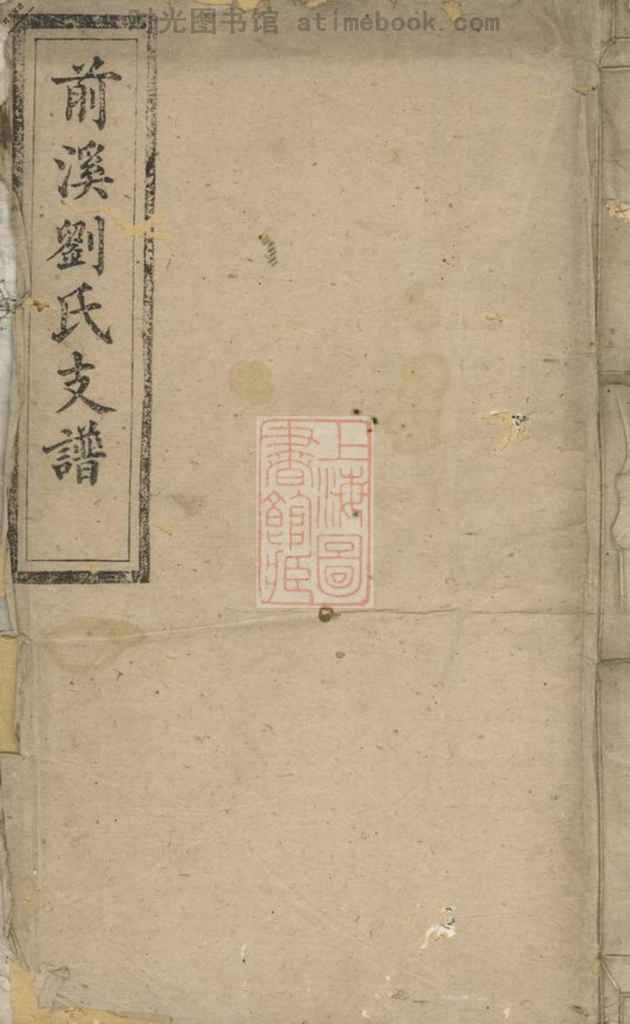 时光图书馆 atimebook.com
前溪劉氏支譜
上海圖
書館藏